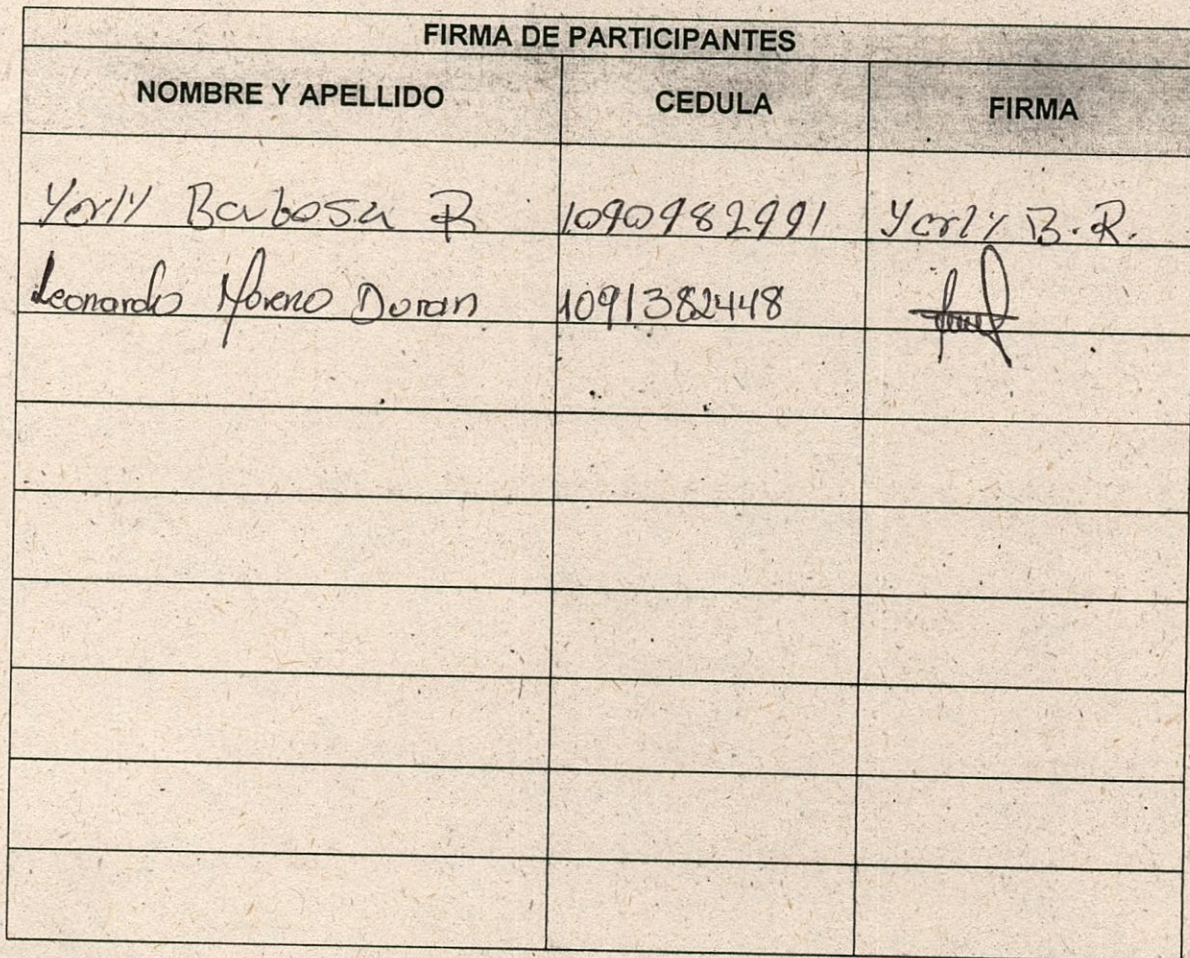 FIRMA DE PARTICIPANTES
NOMBRE Y APELLIDO CEDULA FIRMA
Yorly Barbosa R 1090982991 Yorly B.R.
Leonardo Moreno Duran 1091382448